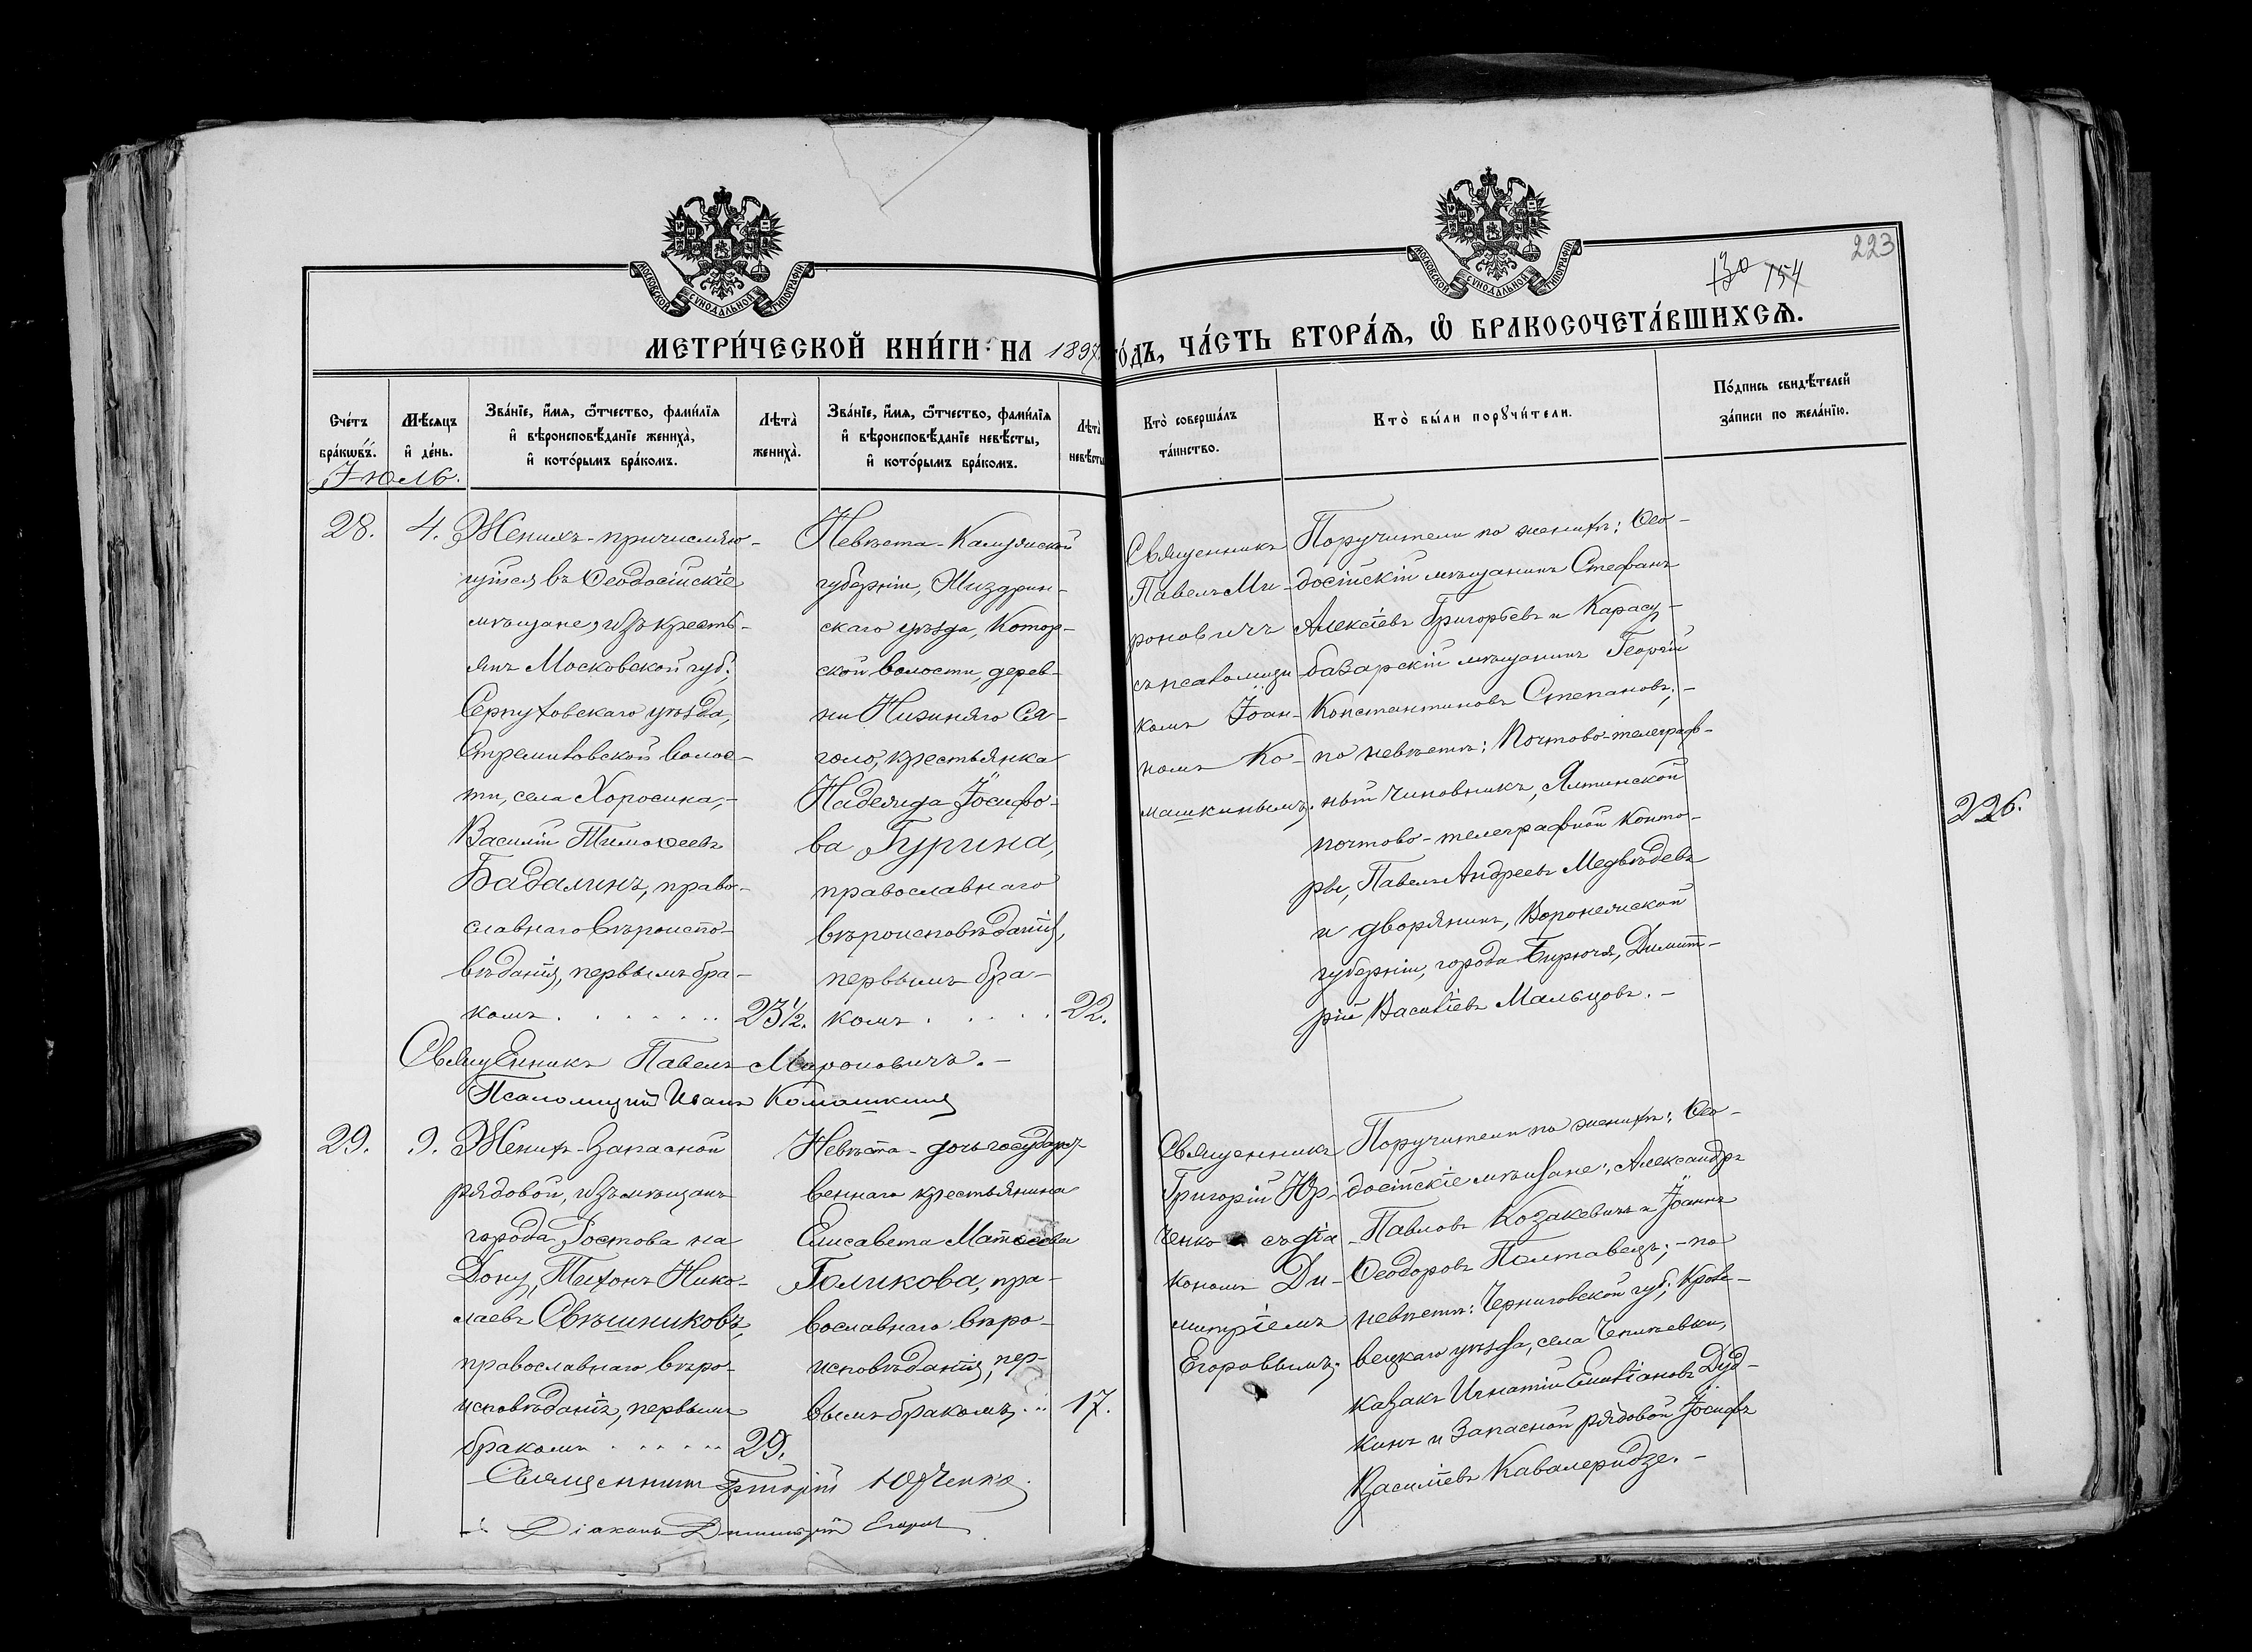 МОСКОВСКОЙ СѴНОДАЛЬНОЙ ТИПОГРАФІИ
МОСКОВСКОЙ СѴНОДАЛЬНОЙ ТИПОГРАФІИ
223
130 154
МЕТРИ́ЧЕСКОЙ КНИ́ГИ НА 1897 ГО́ДЪ, ЧА́СТЬ ВТОРА́Ѧ, Ѽ БРАКОСОЧЕТА́ВШИХСѦ.
Сче́тъ
бра́кѡвъ.
Мѣ́сяцъ
и҆ де́нь.
Зва́нїе, и҆́мя, ѻ҆́тчество, фами́лїя
и҆ вѣроисповѣ́данїе жениха̀,
и҆ кото́рымъ бра́комъ.
Лѣта̀
жениха̀.
Зва́нїе, и҆́мя, ѻ҆́тчество, фами́лїя
и҆ вѣроисповѣ́данїе невѣ́сты,
и҆ кото́рымъ бра́комъ.
Лѣта̀
невѣ́сты
Кто̀ соверша́лъ
та́инство.
Кто̀ бы́ли порꙋчи́тели.
По́дпись свидѣ́телей
за́писи по жела́нїю.
Іюль.
28.
4.
Женихъ - причисляю-
щійся въ Ѳеодосійскіе
мѣщане, изъ кресть-
янъ Московской губ.,
Серпуховскаго уѣзда,
Стремиловской волос-
ти, села Хоросина, -
Василій Тимоѳеевъ
Бадалинъ, право-
славнаго вѣроиспо-
вѣданія, первымъ бра-
комъ . . . . . . .
23 1/2.
Невѣста - Калужской
губерніи, Жиздрин-
скаго уѣзда, Котор-
ской волости, дерев-
ни Нижняго Ся-
голо, крестьянка
Надежда Іосифо-
ва Гурина,
православнаго
вѣроисповѣданія,
первымъ бра-
комъ . . . . .
22.
Священникъ
Павелъ Ми-
роновичъ
съ псаломщи-
комъ Іоан-
номъ Ко-
машкинымъ.
Поручители по женихѣ: Ѳео-
досійскій мѣщанинъ Стефанъ
Алексіевъ Григорьевъ и Карасу-
базарскій мѣщанинъ Георгій
Константиновъ Степановъ; -
по невѣстѣ: Почтово-телеграф-
ный чиновникъ, Ялтинской
почтово-телеграфной конто-
ры, Павелъ Андреевъ Медвѣдевъ
и дворянинъ, Воронежской
губерніи, города Бирюча, Димит-
рій Василіевъ Мальцовъ. -
226.
Священникъ Павелъ Мироновичъ. -
Псаломщикъ Иванъ Комашкинъ
29.
9.
Женихъ - запасной
рядовой, изъ мѣщанъ
города Ростова на
Дону, Тихонъ Нико-
лаевъ Свѣшниковъ,
православнаго вѣро-
исповѣданія, первымъ
бракомъ . . . . . .
29.
Невѣста - дочь государст-
веннаго крестьянина
Елисавета Матѳеева
Голикова, пра-
вославнаго вѣро-
исповѣданія, пер-
вымъ бракомъ . . .
17.
Священникъ
Григорій Юр-
ченко съ діа-
кономъ Ди-
митріемъ
Егоровымъ.
Поручители по женихѣ: Ѳео-
досійскіе мѣщане: Александръ
Павловъ Козакевичъ и Іоаннъ
Ѳеодоровъ Полтавецъ; - по
невѣстѣ: Черниговской губ., Кроле-
вецкаго уѣзда, села Чепліевки,
казакъ Игнатій Емиліановъ Дуд-
кинъ и запасной рядовой Іосифъ
Василіевъ Кавалеридзе. -
Священникъ Григорій Юрченко.
Діаконъ Димитрій Егоровъ